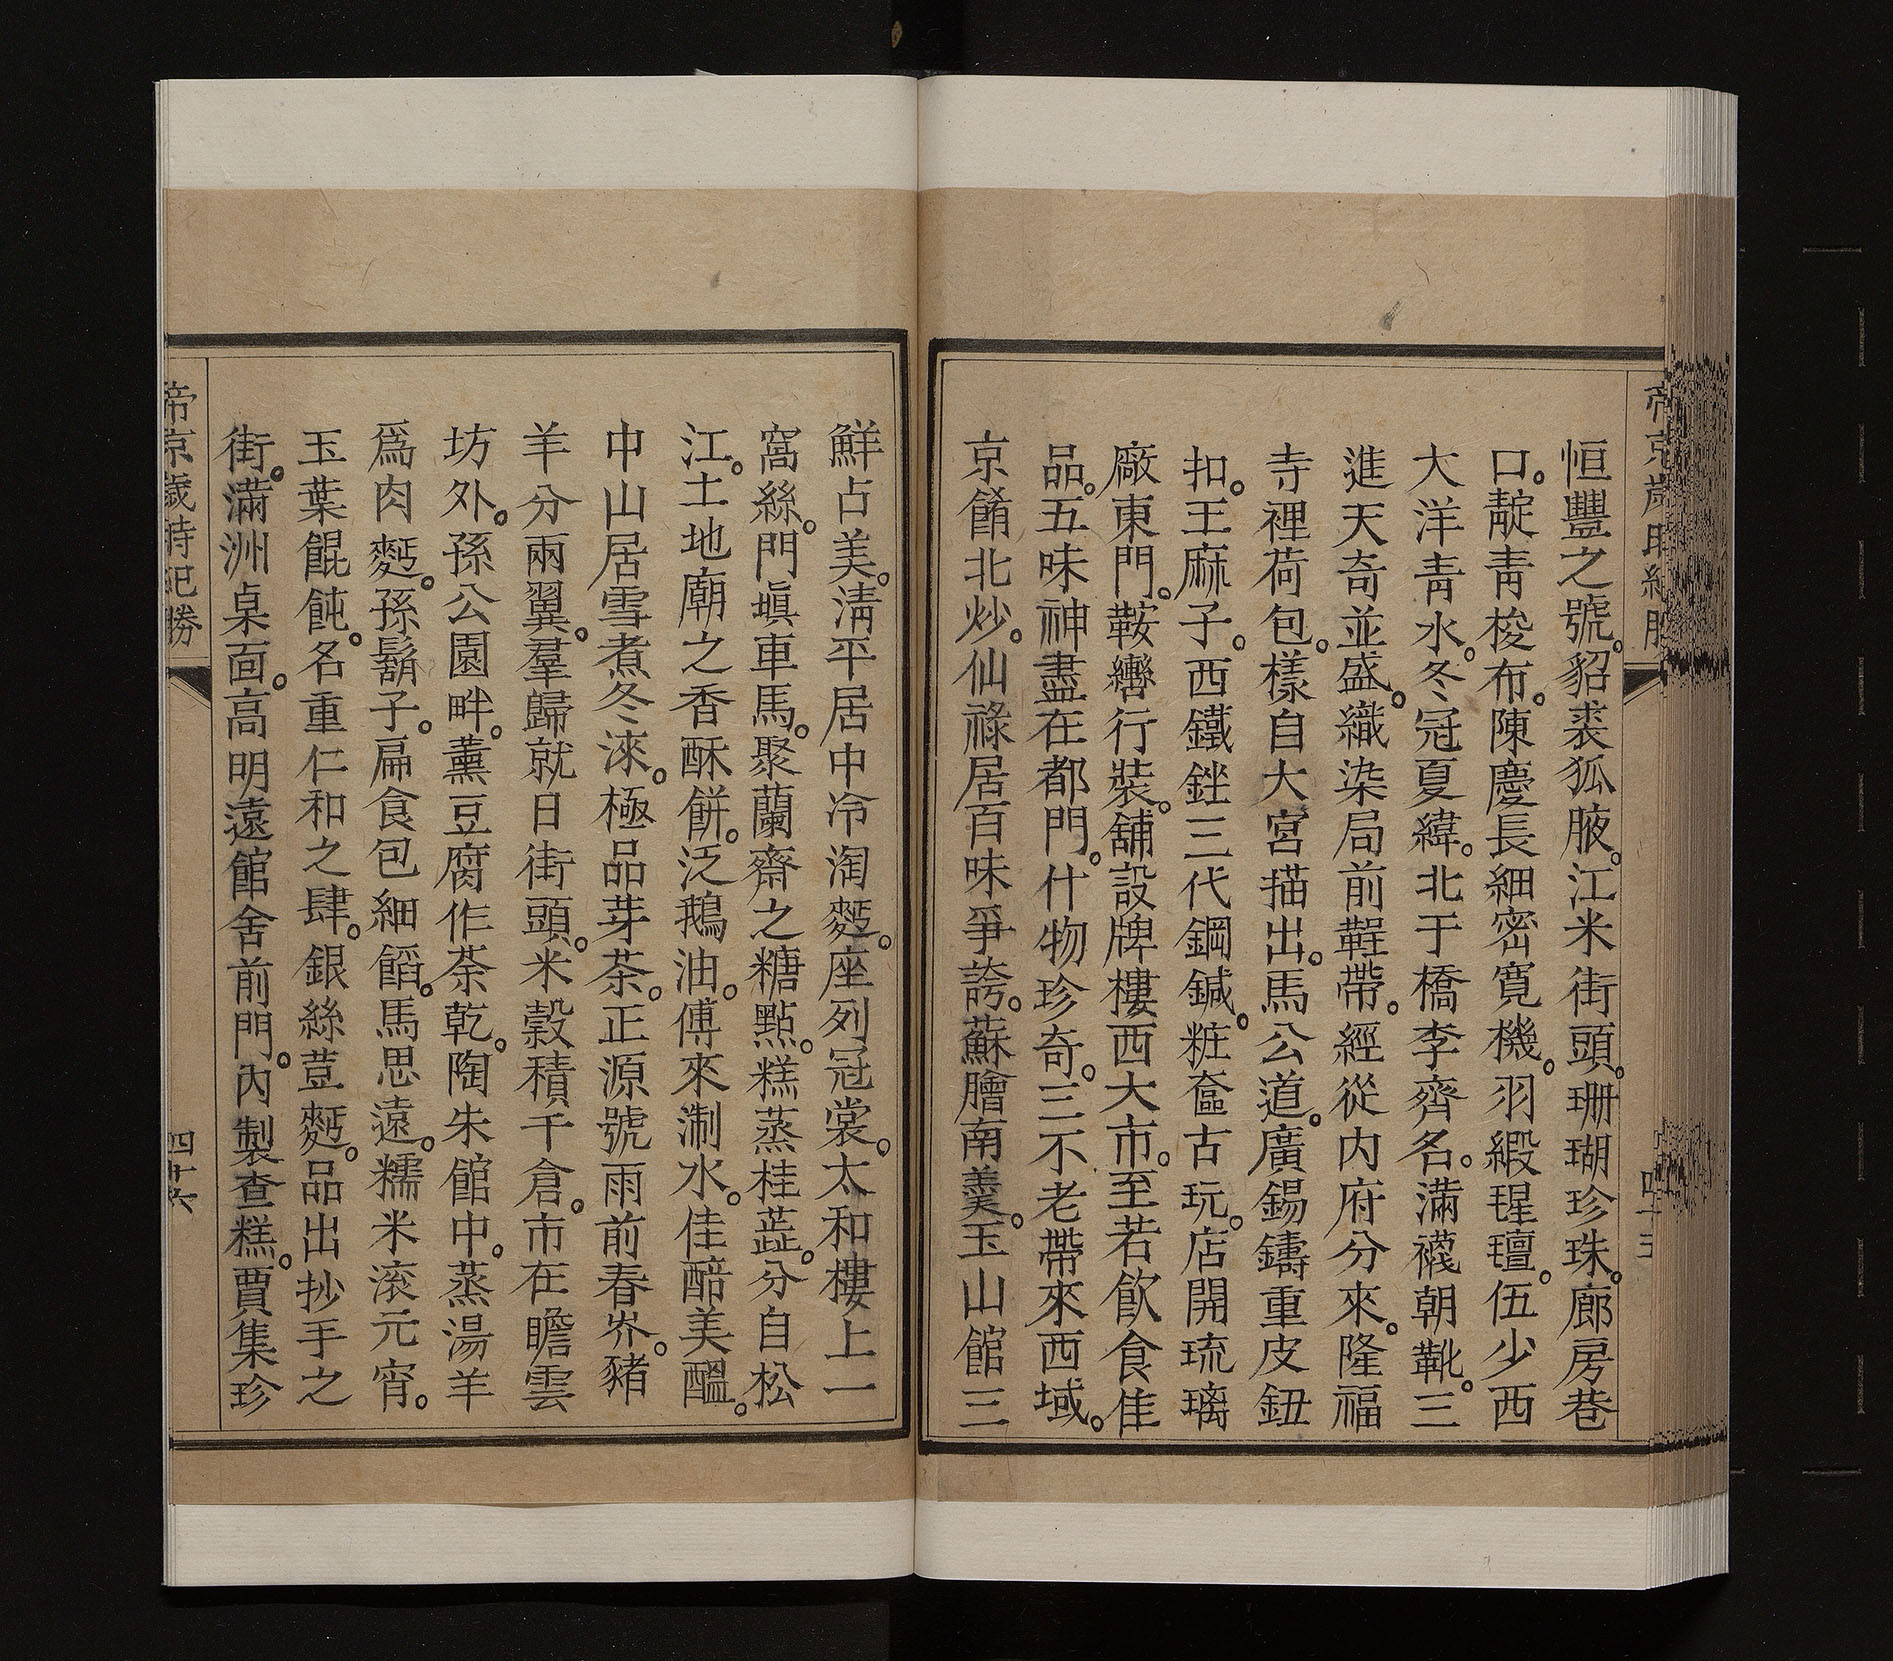 恒豐之號。貂裘狐腋。江米街頭。珊瑚珍珠。廊房巷
口。靛青梭布。陳慶長細密寬機。羽緞毭氊。伍少西
大洋青水。冬冠夏緯。北于橋李齊名。滿襪朝靴。三
進天奇並盛。織染局前鞓帶。經從內府分來。隆福
寺裡荷包。樣自大宮描出。馬公道。廣錫鑄重皮鈕
扣。王麻子。西鐵銼三代鋼鍼。粧奩古玩。店開琉璃
廠東門。鞍轡行裝。舖設牌樓西大市。至若飲食佳
品。五味神盡在都門。什物珍奇。三不老帶來西域。
京餚北炒。仙祿居百味爭誇。蘇膾南羹。玉山館三
鮮占美。清平居中冷淘麪。座列冠裳。太和樓上一
窩絲。門塡車馬。聚蘭齋之糖點。糕蒸桂蕋。分自松
江。土地廟之香酥餅。泛鵝油。傅來淛水。佳醅美醞。
中山居雪煮冬淶。極品芽茶。正源號雨前春岕。豬
羊分兩翼。羣歸就日街頭。米穀積千倉。市在瞻雲
坊外。孫公園畔。薰豆腐作茶乾。陶朱館中。蒸湯羊
爲肉麪。孫鬍子。扁食包細餡。馬思遠。糯米滚元宵。
玉葉餛飩。名重仁和之肆。銀絲荳麪。品出抄手之
街。滿洲桌面。高明遠館舍前門。內製查糕。賈集珍
帝京歲時紀勝
四十六